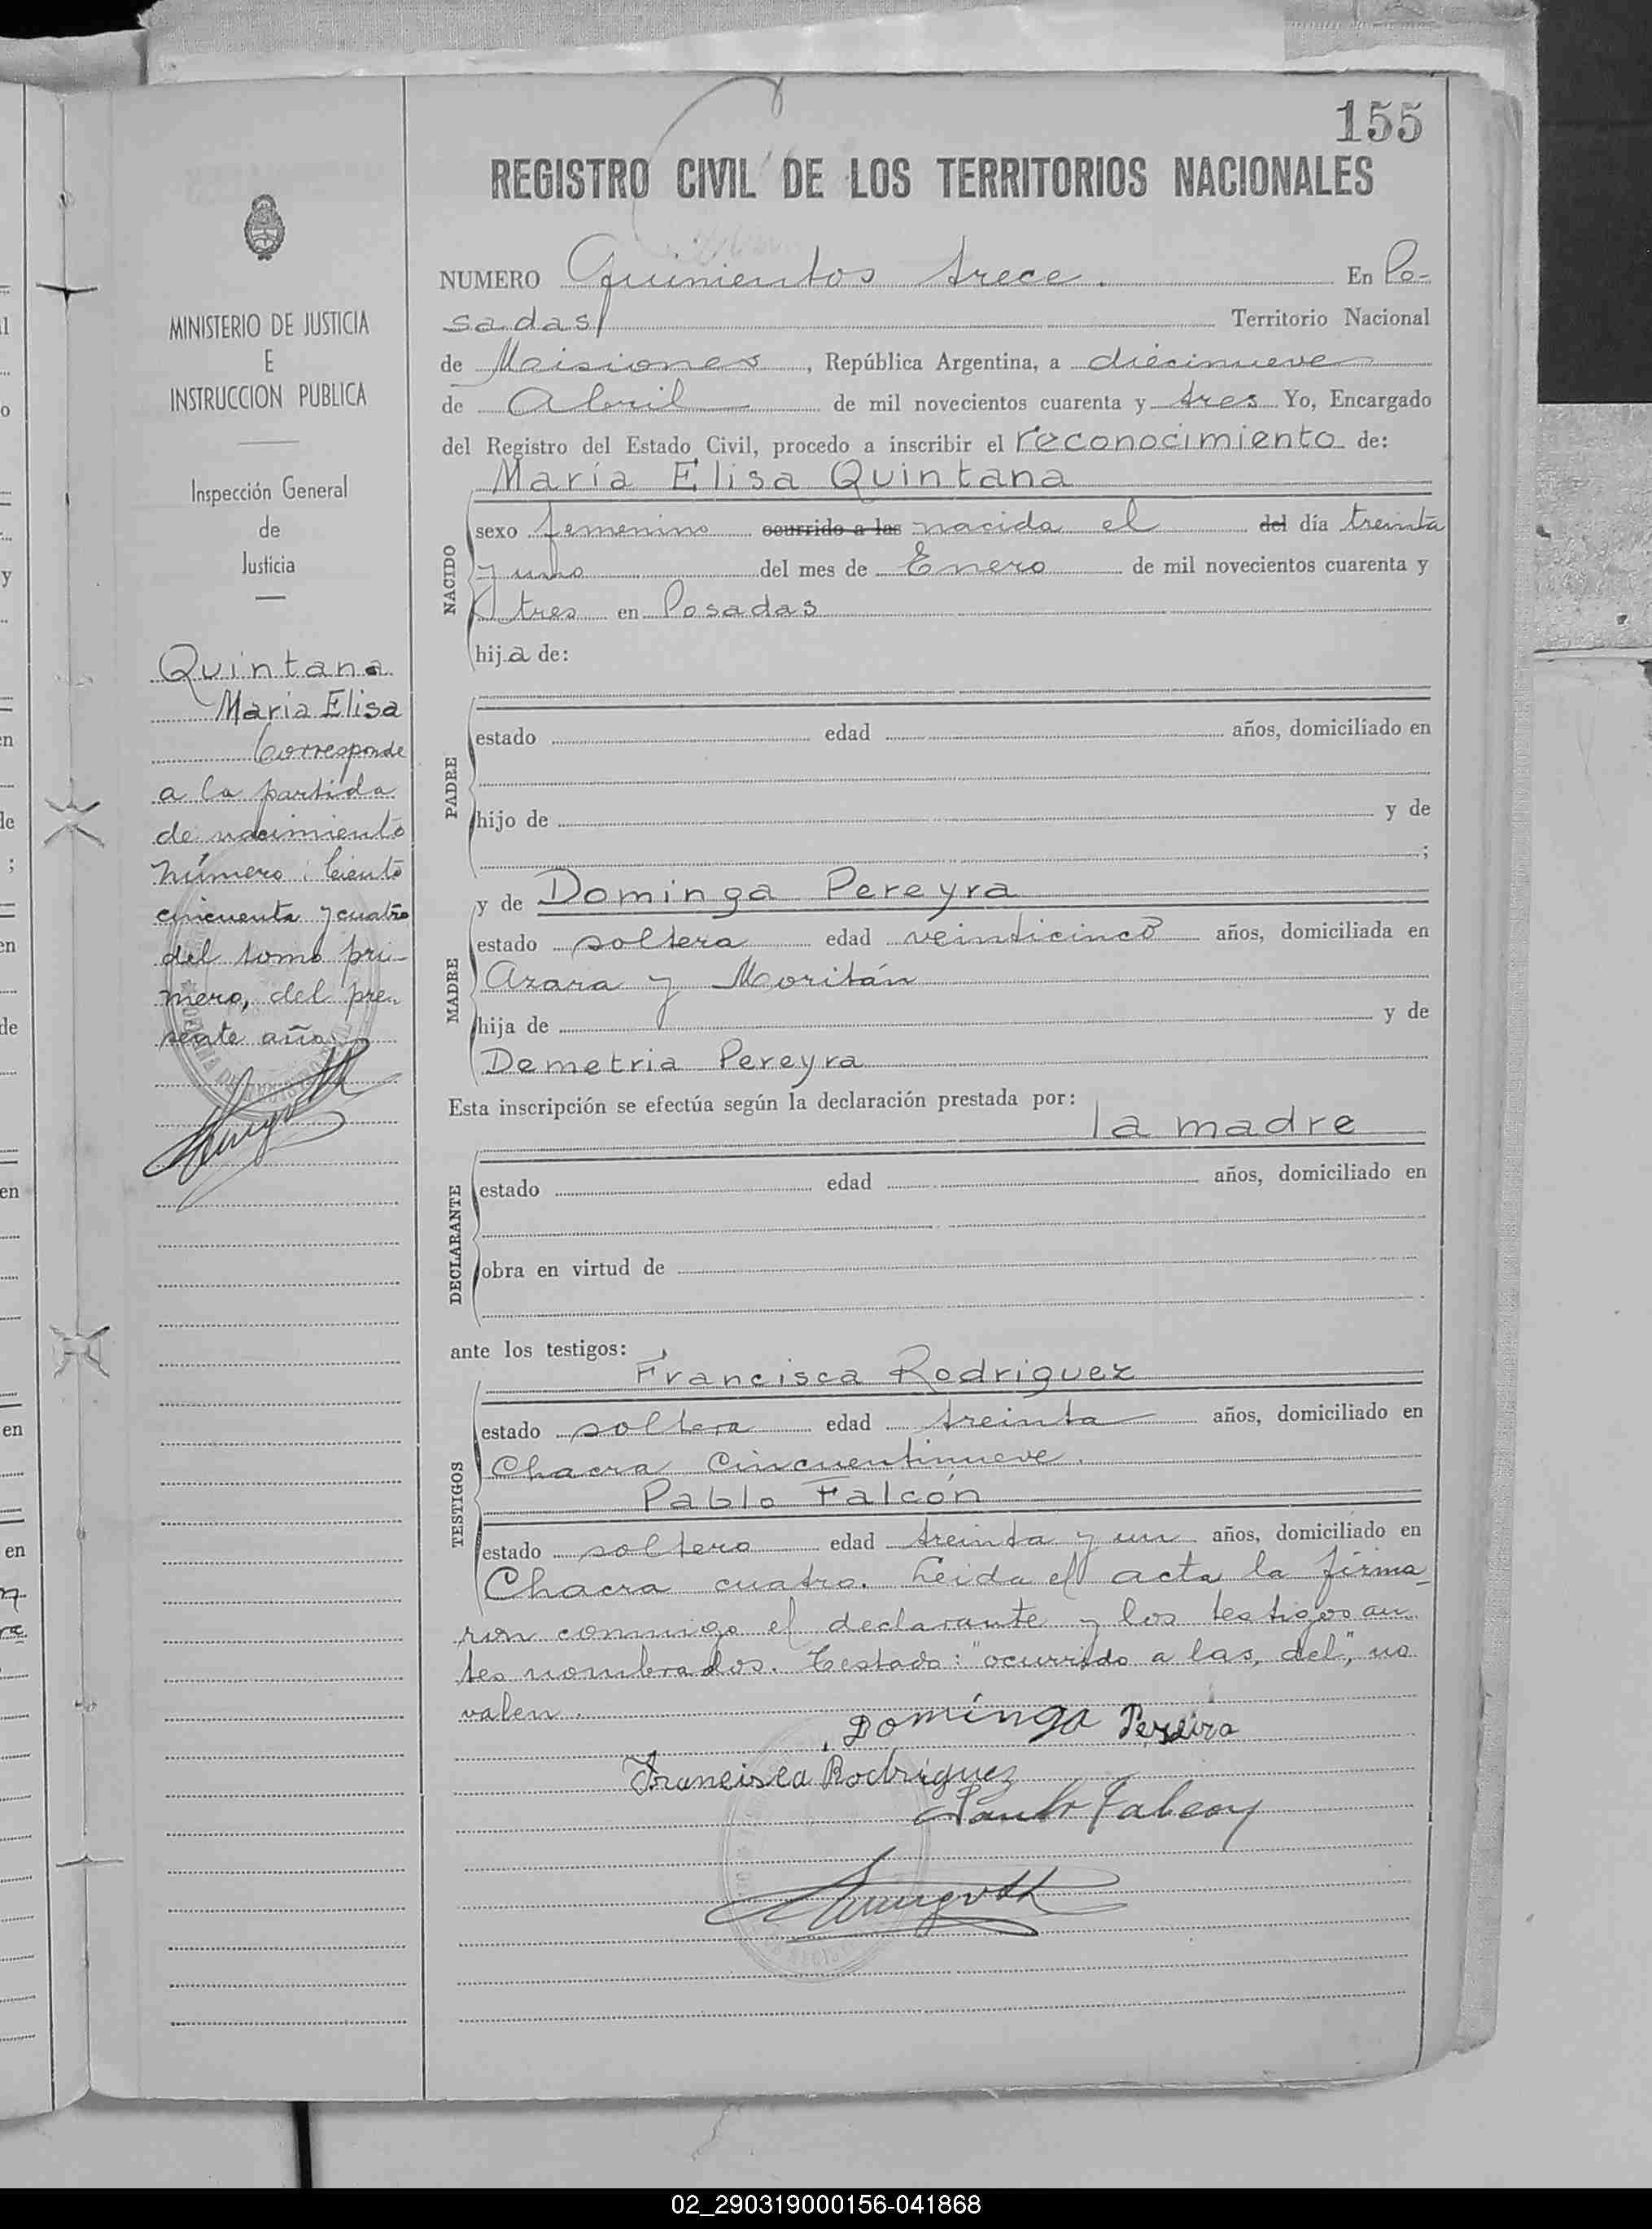 155
REGISTRO CIVIL DE LOS TERRITORIOS NACIONALES
MINISTERIO DE JUSTICIA
E
INSTRUCCION PUBLICA
Inspección General
de
Justicia
Quintana
María Elisa
Corresponde
a la partida
de nacimiento
número: Ciento
cincuenta y cuatro
del tomo pri-
mero, del pre-
sente año
NUMERO Quinientos trece. En Po-
sadas Territorio Nacional
de Misiones, República Argentina, a diecinueve
de Abril de mil novecientos cuarenta y tres Yo, Encargado
del Registro del Estado Civil, procedo a inscribir el reconocimiento de:
María Elisa Quintana
NACIDO
sexo femenino ocurrido a las nacida el del día treinta
y uno del mes de Enero de mil novecientos cuarenta y
tres en Posadas
hija de:
PADRE
estado edad años, domiciliado en
hijo de y de
;
y de Dominga Pereyra
MADRE
estado soltera edad veinticinco años, domiciliada en
Azara y Moritán
hija de y de
Demetria Pereyra
Esta inscripción se efectúa según la declaración prestada por:
la madre
DECLARANTE
estado edad años, domiciliado en
obra en virtud de
ante los testigos:
Francisca Rodriguez
TESTIGOS
estado soltera edad treinta años, domiciliado en
Chacra Cincuentinueve.
Pablo Falcón
estado soltero edad treinta y un años, domiciliado en
Chacra cuatro. Leida el acta la firma-
ron conmigo el declarante y los testigos an-
tes nombrados. Testado: "ocurrido a las, del", no
valen.
Dominga Pereira
Francisca Rodriguez
Falcon
02_290319000156-041868